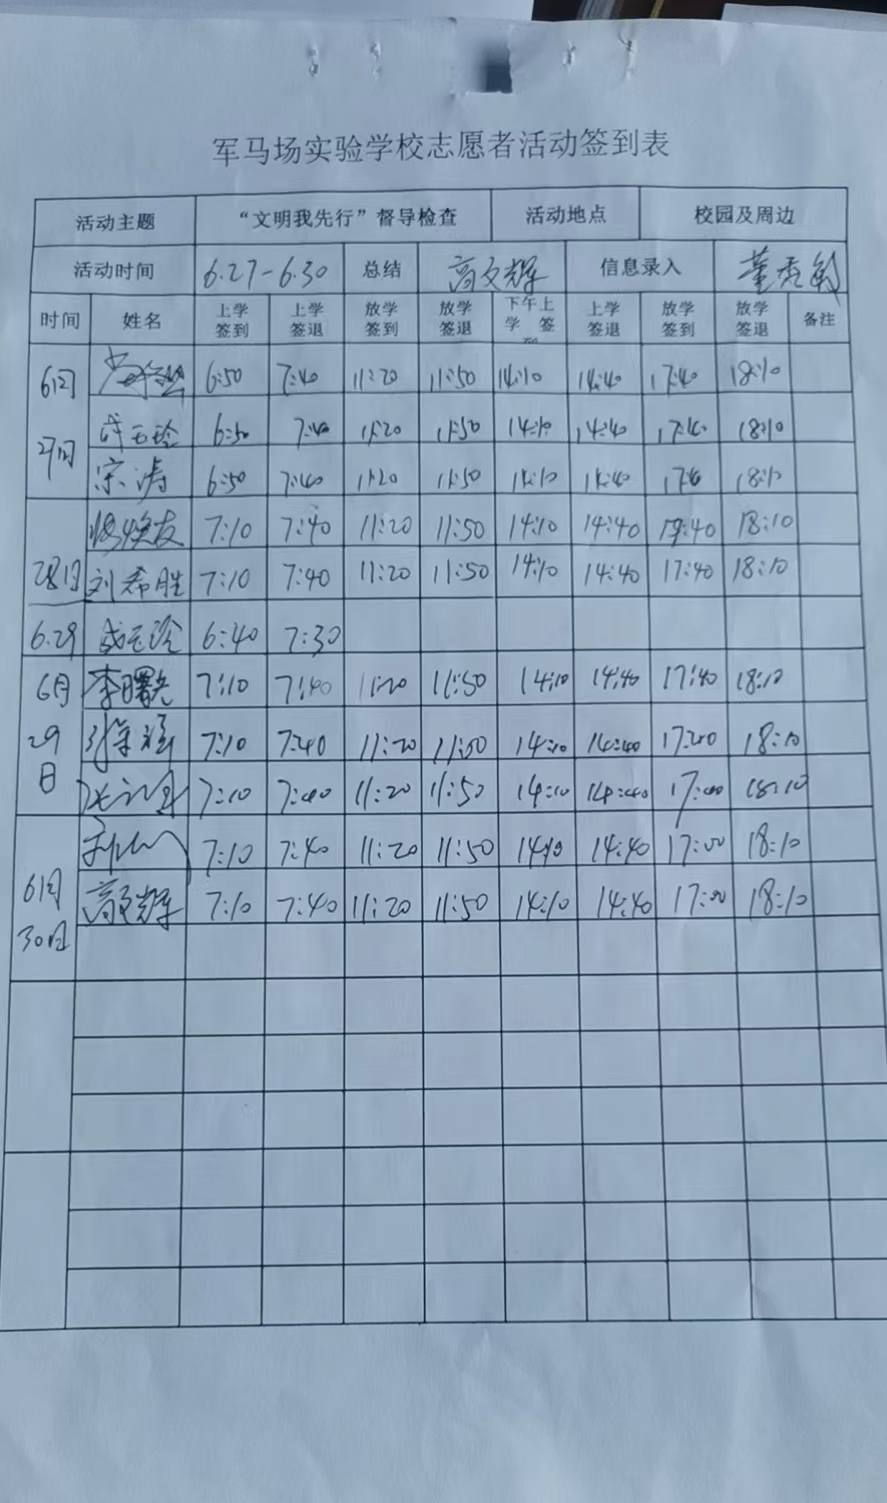 军马场实验学校志愿者活动签到表
活动主题 “文明我先行”督导检查 活动地点 校园及周边
活动时间 6.27-6.30 总结 高文辉 信息录入 董秀敏
时间 姓名 上学签到 上学签退 放学签到 放学签退 下午上学 签 上学签退 放学签到 放学签退 备注
6月 6:50 7:40 11:20 11:50 14:10 14:40 17:40 18:10
27日 6:50 7:40 11:20 11:50 14:10 14:40 17:40 18:10
宋涛 6:50 7:40 11:20 11:50 14:10 14:40 17:40 18:10
7:10 7:40 11:20 11:50 14:10 14:40 17:40 18:10
28日 刘希胜 7:10 7:40 11:20 11:50 14:10 14:40 17:40 18:10
6.29 6:40 7:30
6月 李曙光 7:10 7:40 11:20 11:50 14:10 14:40 17:40 18:10
29 7:10 7:40 11:20 11:50 14:10 14:40 17:40 18:10
日 7:10 7:40 11:20 11:50 14:10 14:40 17:00 18:10
7:10 7:40 11:20 11:50 14:10 14:40 17:00 18:10
6月 高文辉 7:10 7:40 11:20 11:50 14:10 14:40 17:00 18:10
30日